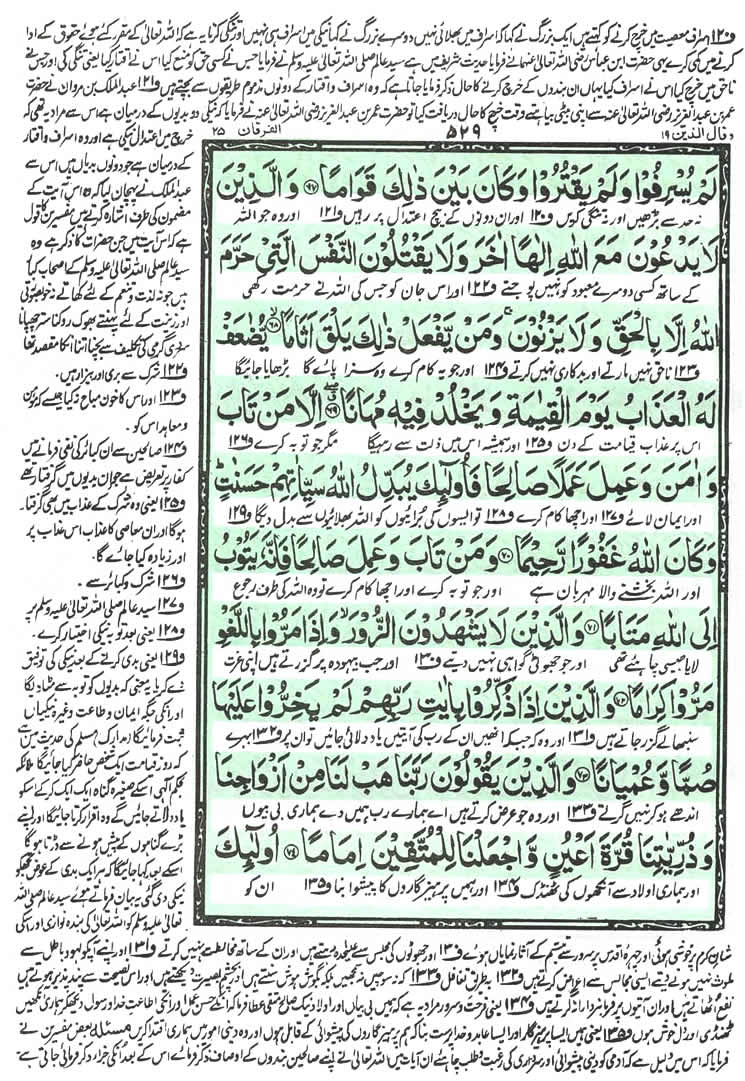 ف۱۲۰ اسراف معصیت میں خرچ کرنے کو کہتے ہیں ایک بزرگ نے کہا کہ اسراف میں بھلائی نہیں دوسرے بزرگ نے کہا نیکی میں اسراف ہی نہیں اور تنگی کرنا یہ ہے کہ اللہ تعالیٰ کے مقرر کئے ہوئے حقوق کے ادا
کرنے میں کمی کرے یہی حضرت ابن عباس رضی اللہ تعالیٰ عنہما نے فرمایا حدیث شریف میں ہے سید عالم صلی اللہ تعالیٰ علیہ وسلم نے فرمایا جس نے کسی حق کو منع کیا اس نے اقتار کیا یعنی تنگی کی اور جس نے
ناحق میں خرچ کیا اس نے اسراف کیا یہاں ان بندوں کے خرچ کرنے کا حال ذکر فرمایا جاتا ہے کہ وہ اسراف و اقتار کے دونوں مذموم طریقوں سے بچتے ہیں ف۱۲۱ عبدالملک بن مروان نے حضرت
عمر بن عبدالعزیز رضی اللہ تعالیٰ عنہ سے اپنی بیٹی بیاہتے وقت خرچ کا حال دریافت کیا تو حضرت عمر بن عبدالعزیز رضی اللہ تعالیٰ عنہ نے فرمایا کہ نیکی دو بدیوں کے درمیان ہے اس سے مراد یہ تھی کہ
وقال الذین ۱۹
۵۲۹
الفرقان ۲۵
خرچ میں اعتدال نیکی ہے اور وہ اسراف و اقتار
کے درمیان ہے جو دونوں بدیاں ہیں اس سے
عبدالملک نے پہچان لیا کہ وہ اس آیت کے
مضمون کی طرف اشارہ کرتے ہیں مفسرین کا قول
ہے کہ اس آیت میں جن حضرات کا ذکر ہے وہ
سید عالم صلی اللہ تعالیٰ علیہ وسلم کے اصحاب کبار
ہیں جو نہ لذت و تنعم کے لئے کھاتے نہ خوبصورتی
اور زینت کے لئے پہنتے بھوک روکنا ستر چھپانا
سردی گرمی کی تکلیف سے بچنا اتنا ان کا مقصد تھا
ف۱۲۲ شرک سے بری اور بیزار ہیں۔
ف۱۲۳ اور اس کا خون مباح نہ کیا جیسے کہ مومن
و معاہد اس کو۔
ف۱۲۴ صالحین سے ان کبائر کی نفی فرمانے میں
کفار پر تعریض ہے جو ان بدیوں میں گرفتار تھے
ف۱۲۵ یعنی وہ شرک کے عذاب میں بھی گرفتار
ہوگا اور ان معاصی کا عذاب اس عذاب پر
اور زیادہ کیا جائے گا
ف۱۲۶ شرک و کبائر سے۔
ف۱۲۷ سید عالم صلی اللہ تعالیٰ علیہ وسلم پر
ف۱۲۸ یعنی بعد توبہ نیکی اختیار کرے۔
ف۱۲۹ یعنی بدی کرنے کے بعد نیکی کی توفیق
دے کر یا یہ معنی کہ بدیوں کو توبہ سے مٹا دے گا
اور ان کی جگہ ایمان و طاعت وغیرہ نیکیاں
ثبت فرمائے گا (مدارک) مسلم کی حدیث میں ہے
کہ روز قیامت ایک شخص حاضر کیا جائے گا ملائکہ
بحکم الٰہی اسے صغیرہ گناہ ایک ایک کر کے اسکو
یاد دلاتے جائیں گے وہ اقرار کرتا جائے گا اور اپنے
بڑے گناہوں کے پیش ہونے سے ڈرتا ہوگا
اسکے بعد کہا جائے گا کہ ہر ایک بدی کے عوض تجھکو
نیکی دی گئی یہ بیان فرماتے ہوئے سید عالم صلی اللہ
تعالیٰ علیہ وسلم کو اللہ تعالیٰ کی بندہ نوازی اور اسکی
لَمْ یُسْرِفُوْا وَلَمْ یَقْتُرُوْا وَكَانَ بَیْنَ ذٰلِكَ قَوَامًا ۶۷ وَالَّذِیْنَ
نہ حد سے بڑھیں اور نہ تنگی کریں ف۱۲۰ اور ان دونوں کے بیچ اعتدال پر رہیں ف۱۲۱ اور وہ جو اللہ
لَا یَدْعُوْنَ مَعَ اللّٰهِ اِلٰهًا اٰخَرَ وَلَا یَقْتُلُوْنَ النَّفْسَ الَّتِیْ حَرَّمَ
کے ساتھ کسی دوسرے معبود کو نہیں پوجتے ف۱۲۲ اور اس جان کو جس کی اللہ نے حرمت رکھی
اللّٰهُ اِلَّا بِالْحَقِّ وَلَا یَزْنُوْنَ ۚ وَمَنْ یَّفْعَلْ ذٰلِكَ یَلْقَ اَثَامًا ۶۸ یُّضٰعَفْ
ف۱۲۳ ناحق نہیں مارتے اور بدکاری نہیں کرتے ف۱۲۴ اور جو یہ کام کرے وہ سزا پائے گا بڑھایا جائیگا
لَهُ الْعَذَابُ یَوْمَ الْقِیٰمَةِ وَیَخْلُدْ فِیْهٖ مُهَانًا ۶۹ اِلَّا مَنْ تَابَ
اس پر عذاب قیامت کے دن ف۱۲۵ اور ہمیشہ اس میں ذلت سے رہیگا مگر جو توبہ کرے ف۱۲۶
وَاٰمَنَ وَعَمِلَ عَمَلًا صَالِحًا فَاُولٰٓىِٕكَ یُبَدِّلُ اللّٰهُ سَیِّاٰتِهِمْ حَسَنٰتٍ
اور ایمان لائے ف۱۲۷ اور اچھا کام کرے ف۱۲۸ تو ایسوں کی برائیوں کو اللہ بھلائیوں سے بدل دیگا ف۱۲۹
وَكَانَ اللّٰهُ غَفُوْرًا رَّحِیْمًا ۷۰ وَمَنْ تَابَ وَعَمِلَ صَالِحًا فَاِنَّهٗ یَتُوْبُ
اور اللہ بخشنے والا مہربان ہے اور جو توبہ کرے اور اچھا کام کرے تو وہ اللہ کی طرف رجوع
اِلَى اللّٰهِ مَتَابًا ۷۱ وَالَّذِیْنَ لَا یَشْهَدُوْنَ الزُّوْرَ ۙ وَاِذَا مَرُّوْا بِاللَّغْوِ
لایا جیسی چاہئے تھی اور جو جھوٹی گواہی نہیں دیتے ف۱۳۰ اور جب بیہودہ پر گزرتے ہیں اپنی عزت
مَرُّوْا كِرَامًا ۷۲ وَالَّذِیْنَ اِذَا ذُكِّرُوْا بِاٰیٰتِ رَبِّهِمْ لَمْ یَخِرُّوْا عَلَیْهَا
سنبھالے گزر جاتے ہیں ف۱۳۱ اور وہ کہ جب کہ انھیں ان کے رب کی آیتیں یاد دلائی جائیں تو ان پر ف۱۳۲ بہرے
صُمًّا وَّعُمْیَانًا ۷۳ وَالَّذِیْنَ یَقُوْلُوْنَ رَبَّنَا هَبْ لَنَا مِنْ اَزْوَاجِنَا
اندھے ہو کر نہیں گرتے ف۱۳۳ اور وہ جو عرض کرتے ہیں اے ہمارے رب ہمیں دے ہماری بی بیوں
وَذُرِّیّٰتِنَا قُرَّةَ اَعْیُنٍ وَّاجْعَلْنَا لِلْمُتَّقِیْنَ اِمَامًا ۷۴ اُولٰٓىِٕكَ
اور ہماری اولاد سے آنکھوں کی ٹھنڈک ف۱۳۴ اور ہمیں پرہیزگاروں کا پیشوا بنا ف۱۳۵ ان کو
شان کرم پر خوشی ہوئی اور چہرہ اقدس پر سرور سے تبسم کے آثار نمایاں ہوئے ف۱۳۰ اور جھوٹوں کی مجلس سے علیحدہ رہتے ہیں اور ان کے ساتھ مخالطت نہیں کرتے ف۱۳۱ اور اپنے آپ کو لہو و باطل سے
ملوث نہیں ہونے دیتے ایسی مجالس سے اعراض کرتے ہیں ف۱۳۲ بطریق تغافل ف۱۳۳ کہ نہ سوچیں نہ سمجھیں بلکہ بگوش ہوش سنتے ہیں اور بچشم بصیرت دیکھتے ہیں اور اس نصیحت سے پند پذیر ہوتے ہیں
نفع اٹھاتے ہیں اور ان آیتوں پر فرمانبردارانہ گرتے ہیں ف۱۳۴ یعنی فرحت و سرور مراد یہ ہے کہ ہمیں بی بیاں اور اولاد نیک صالح متقی عطا فرما کہ انکے حسن عمل اور انکی اطاعت خدا و رسول دیکھ کر ہماری آنکھیں
ٹھنڈی اور دل خوش ہوں ف۱۳۵ یعنی ہمیں ایسا پرہیزگار اور ایسا عابد و خدا پرست بنا کہ ہم پرہیزگاروں کی پیشوائی کے قابل ہوں اور وہ دینی امور میں ہماری اقتدا کریں مسئلہ بعض مفسرین نے
فرمایا کہ اس میں دلیل ہے کہ آدمی کو دینی پیشوائی اور سرداری کی رغبت و طلب چاہئے ان آیات میں اللہ تعالیٰ نے اپنے صالحین بندوں کے اوصاف ذکر فرمائے اس کے بعد انکی جزا ذکر فرمائی جاتی ہے۔